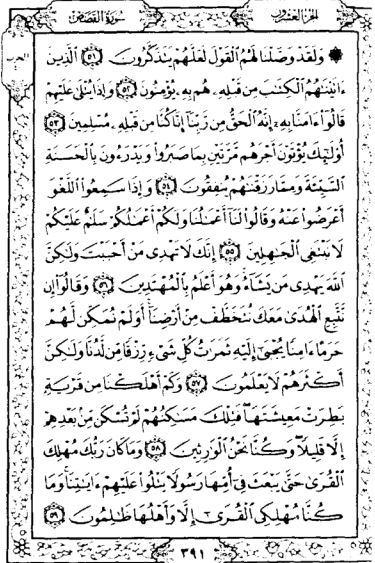 الجزء العشرون سورة القصص
۞ وَلَقَدْ وَصَّلْنَا لَهُمُ ٱلْقَوْلَ لَعَلَّهُمْ يَتَذَكَّرُونَ ٥١ ٱلَّذِينَ
ءَاتَيْنَٰهُمُ ٱلْكِتَٰبَ مِن قَبْلِهِۦ هُم بِهِۦ يُؤْمِنُونَ ٥٢ وَإِذَا يُتْلَىٰ عَلَيْهِمْ
قَالُوٓا۟ ءَامَنَّا بِهِۦٓ إِنَّهُ ٱلْحَقُّ مِن رَّبِّنَآ إِنَّا كُنَّا مِن قَبْلِهِۦ مُسْلِمِينَ ٥٣
أُو۟لَٰٓئِكَ يُؤْتَوْنَ أَجْرَهُم مَّرَّتَيْنِ بِمَا صَبَرُوا۟ وَيَدْرَءُونَ بِٱلْحَسَنَةِ
ٱلسَّيِّئَةَ وَمِمَّا رَزَقْنَٰهُمْ يُنفِقُونَ ٥٤ وَإِذَا سَمِعُوا۟ ٱللَّغْوَ
أَعْرَضُوا۟ عَنْهُ وَقَالُوا۟ لَنَآ أَعْمَٰلُنَا وَلَكُمْ أَعْمَٰلُكُمْ سَلَٰمٌ عَلَيْكُمْ
لَا نَبْتَغِى ٱلْجَٰهِلِينَ ٥٥ إِنَّكَ لَا تَهْدِى مَنْ أَحْبَبْتَ وَلَٰكِنَّ
ٱللَّهَ يَهْدِى مَن يَشَآءُ وَهُوَ أَعْلَمُ بِٱلْمُهْتَدِينَ ٥٦ وَقَالُوٓا۟ إِن
نَّتَّبِعِ ٱلْهُدَىٰ مَعَكَ نُتَخَطَّفْ مِنْ أَرْضِنَآ أَوَلَمْ نُمَكِّن لَّهُمْ
حَرَمًا ءَامِنًا يُجْبَىٰٓ إِلَيْهِ ثَمَرَٰتُ كُلِّ شَىْءٍ رِّزْقًا مِّن لَّدُنَّا وَلَٰكِنَّ
أَكْثَرَهُمْ لَا يَعْلَمُونَ ٥٧ وَكَمْ أَهْلَكْنَا مِن قَرْيَةٍۭ
بَطِرَتْ مَعِيشَتَهَا فَتِلْكَ مَسَٰكِنُهُمْ لَمْ تُسْكَن مِّنۢ بَعْدِهِمْ
إِلَّا قَلِيلًا وَكُنَّا نَحْنُ ٱلْوَٰرِثِينَ ٥٨ وَمَا كَانَ رَبُّكَ مُهْلِكَ
ٱلْقُرَىٰ حَتَّىٰ يَبْعَثَ فِىٓ أُمِّهَا رَسُولًا يَتْلُوا۟ عَلَيْهِمْ ءَايَٰتِنَا وَمَا
كُنَّا مُهْلِكِى ٱلْقُرَىٰٓ إِلَّا وَأَهْلُهَا ظَٰلِمُونَ ٥٩
٣٩١